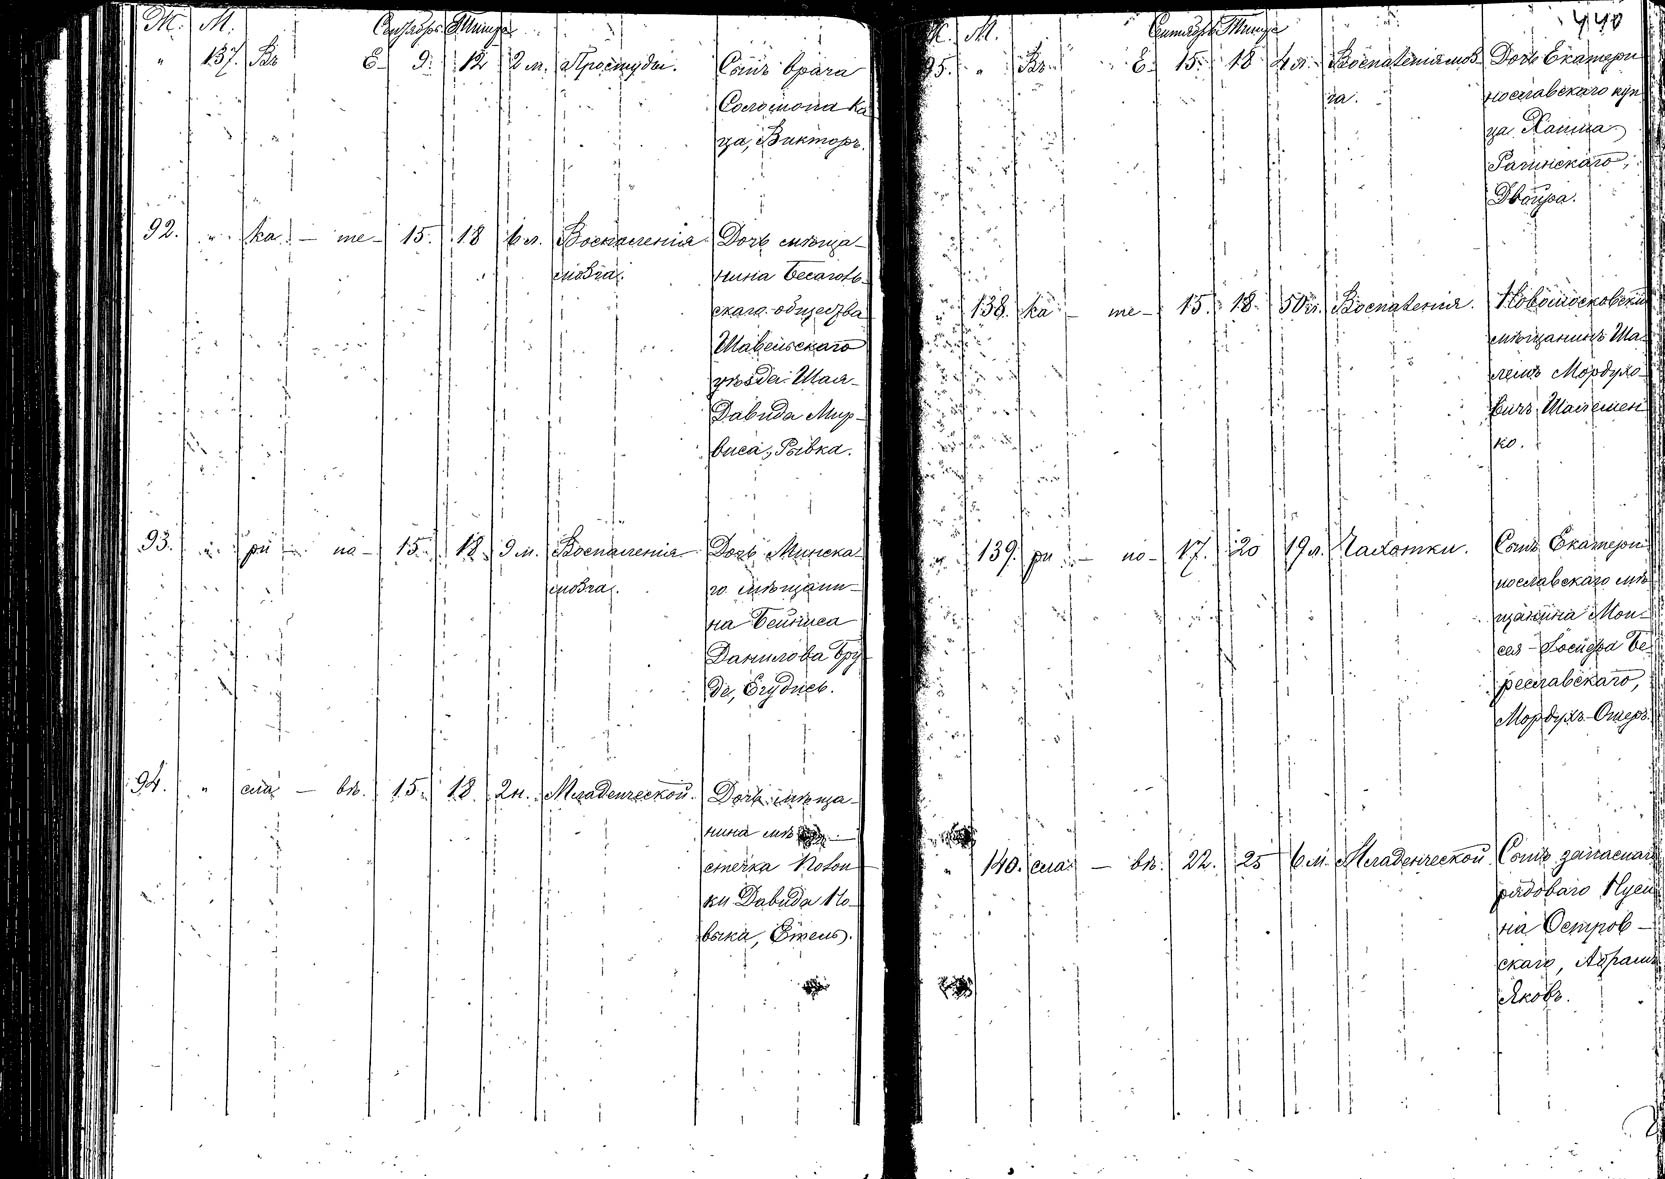 Ж. М. Сентябрь Тишре
" 137. Въ Е- 9. 12 2 м. Простуды. Сынъ врача
Соломона Ка-
ца, Викторъ.
92. " ка - те- 15. 18 6 л. Воспаленія Дочь мѣща-
мозга. нина Бесагов-
скаго общества
Шавельскаго
уѣзда Шая-
Давида Мир-
виса, Рывка.
93. " ри - но- 15. 18 9 м. Воспаленія Дочь Минска-
мозга. го мѣщани-
на Бейниса
Данилова Бру-
де, Егудись.
94. " сла - вѣ. 15. 18 2 н. Младенческой. Дочь мѣща-
нина мѣ-
стечка
ки Давида Но-
выка, Этель.
440
Ж. М. Сентябрь Тишре
95. " Въ Е- 15. 18 4 л. Воспаленія моз- Дочь Екатери-
га. нославскаго куп-
ца Хаима
Рагинскаго,
Двойра.
" 138. ка - те- 15. 18 50 л. Воспаленія. Новомосковскій
мѣщанинъ Ша-
лемъ Мордухо-
вичъ Шалемен-
ко.
" 139. ри - но- 17. 20 19 л. Чахотки. Сынъ Екатери-
нославскаго мѣ-
щанина Мои-
сея-Іосифа Бе-
реславскаго,
Мордухъ-Ошеръ.
" 140. сла - вѣ. 22. 25 6 м. Младенческой. Сынъ запаснаго
рядоваго Нуси-
на Остров-
скаго, Абрамъ
Яковъ.